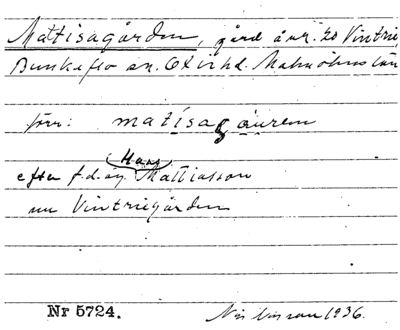 Mattisagården, gård å nr. 20 Vintrie
Bunkeflo sn. Oxie hd. Malmöhus län
förr: matisagáuren
Hans
efter f.d. äg. Mattiasson
nu Vintriegården
Nr 5724. Nils Nilsson 1936.